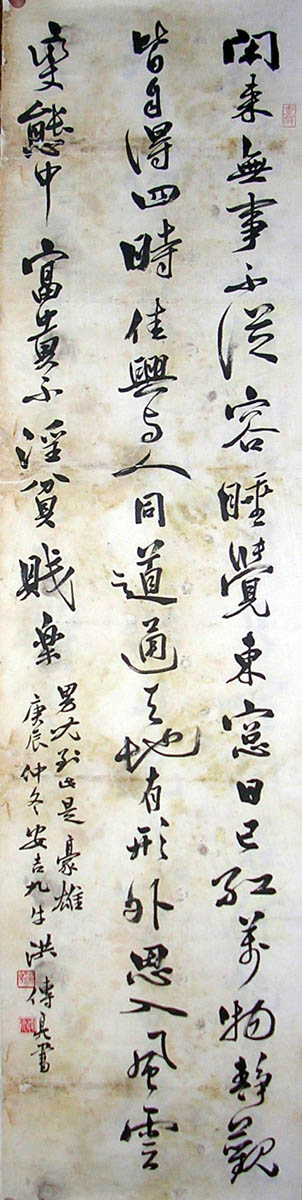 閑來無事不從容睡覺東窓日已紅萬物靜觀
皆自得四時佳興与人同道通天地有形外思入風雲
變態中富貴不淫貧賤樂
男兒到此是豪雄
庚辰仲冬安吉九
洪傳
書